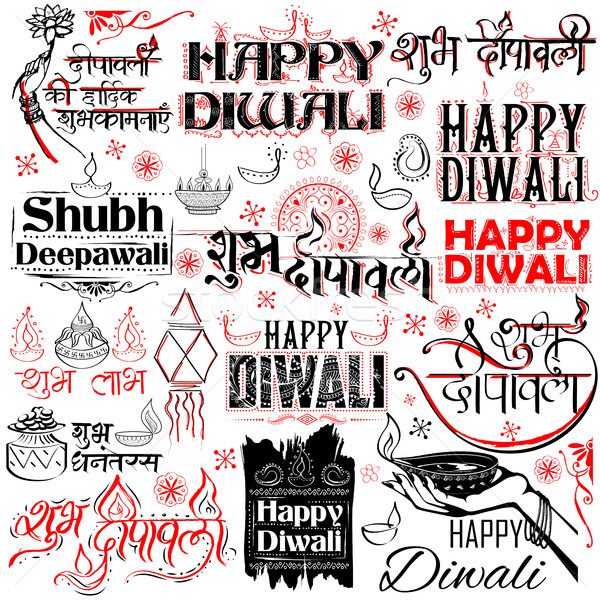 दीपावली
की हार्दिक
शुभकामनाएँ
HAPPY
DIWALI
शुभ दीपावली
HAPPY
DIWALI
Shubh
Deepawali
शुभ दीपावली
HAPPY
DIWALI
HAPPY
DIWALI
शुभ
दीपावली
शुभ लाभ
शुभ
धनतेरस
शुभ दीपावली
Happy
Diwali
HAPPY
Diwali